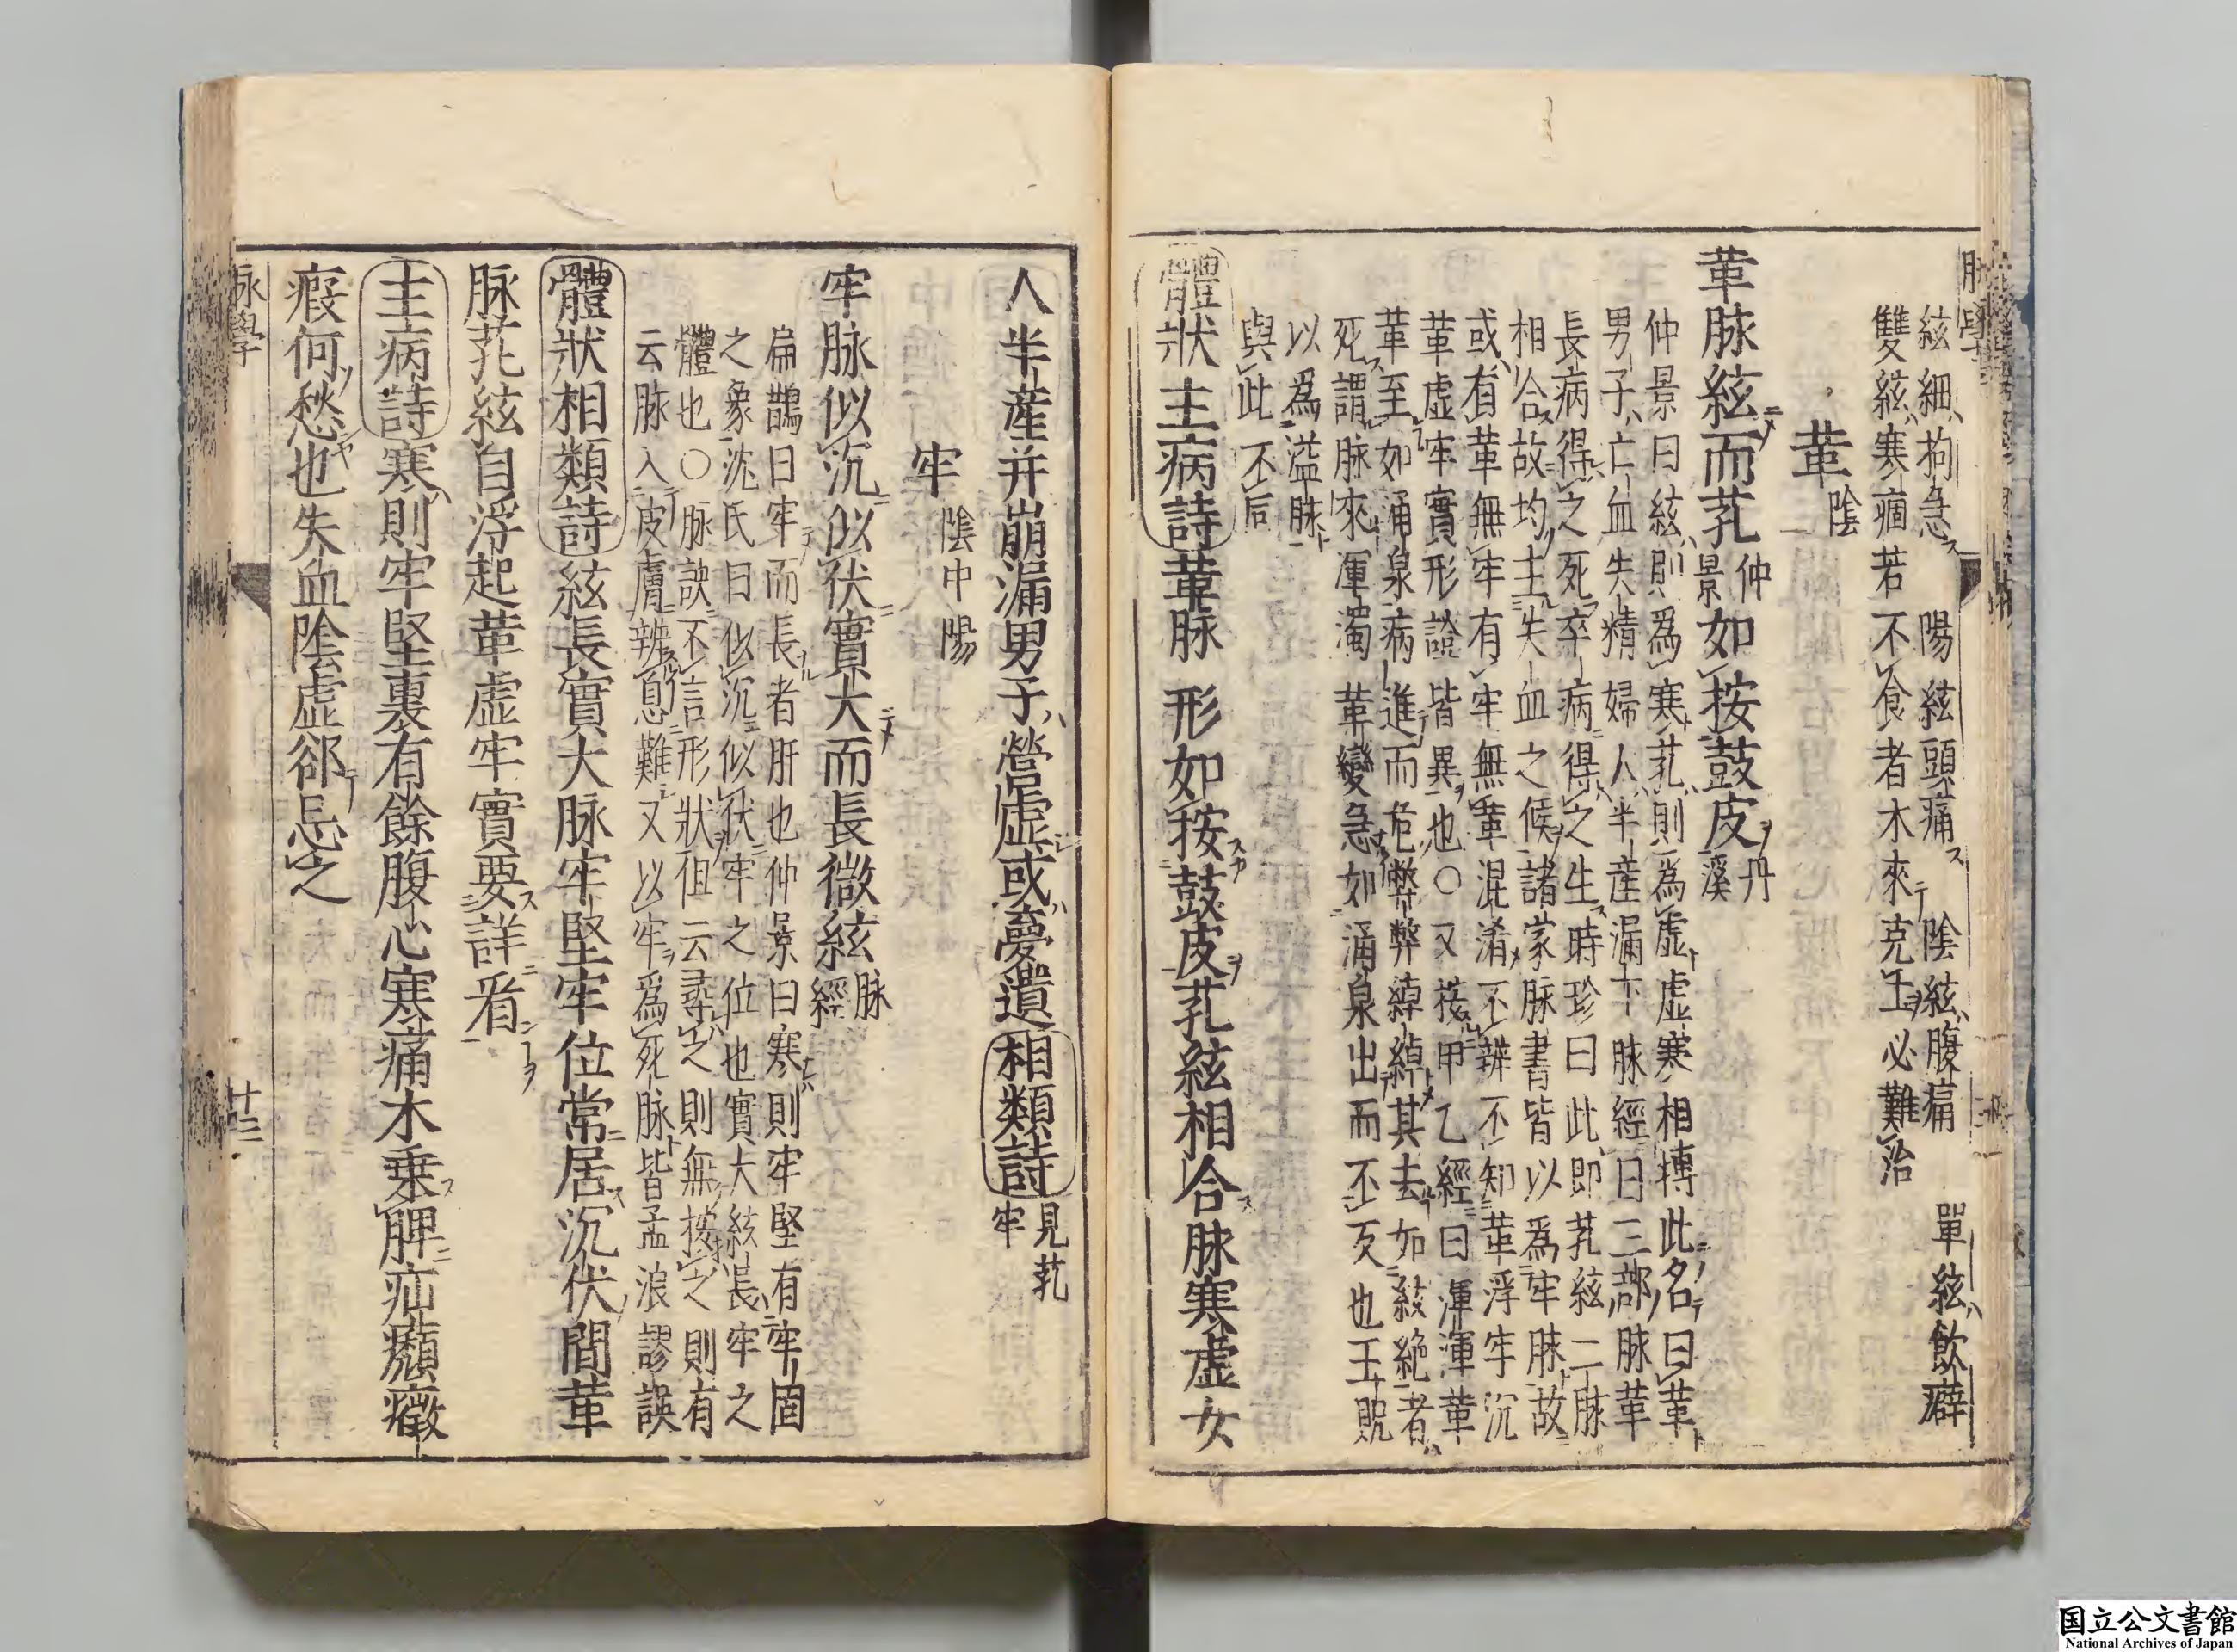 絃細拘急　陽絃頭痛　陰絃腹痛　單絃飲癖
雙絃寒痼若不食者木來克土必難治
革陰
革脉絃而芤仲景如按鼓皮丹溪
仲景曰絃則爲寒芤則爲虚虚寒相摶此名曰革
男子亡血失精婦人半産漏下脉經曰三部脉革
長病得之死卒病得之生時珍曰此即芤絃二脉
相合故均主失血之候諸家脉書皆以爲牢脉故
或有革無牢有牢無革混淆不辨不知革浮牢沉
革虚牢實形證皆異也○又按甲乙經曰渾渾革
革至如涌泉病進而危弊弊綽綽其去如絃絶者
死謂脉來渾濁革變急如涌泉出而不反也王貺
以爲溢脉
與此不同
體狀主病詩革脉形如按鼓皮芤絃相合脉寒虚女
人半産并崩漏男子營虚或夢遺相類詩見芤牢
牢陰中陽
牢脉似沉似伏實大而長微絃脉經
扁鵲曰牢而長者肝也仲景曰寒則牢堅有牢固
之象沈氏曰似沉似伏牢之位也實大絃長牢之
體也○脉訣不言形狀但云尋之則無按之則有
云脉入皮膚辨息難又以牢爲死脉皆孟浪謬誤
體狀相類詩絃長實大脉牢堅牢位常居沉伏間革
脉芤絃自浮起革虚牢實要詳看
主病詩寒則牢堅裏有餘腹心寒痛木乗脾疝㿗癥
瘕何愁也失血陰虚郤忌之
脉學
廿三
国立公文書館
National Archives of Japan